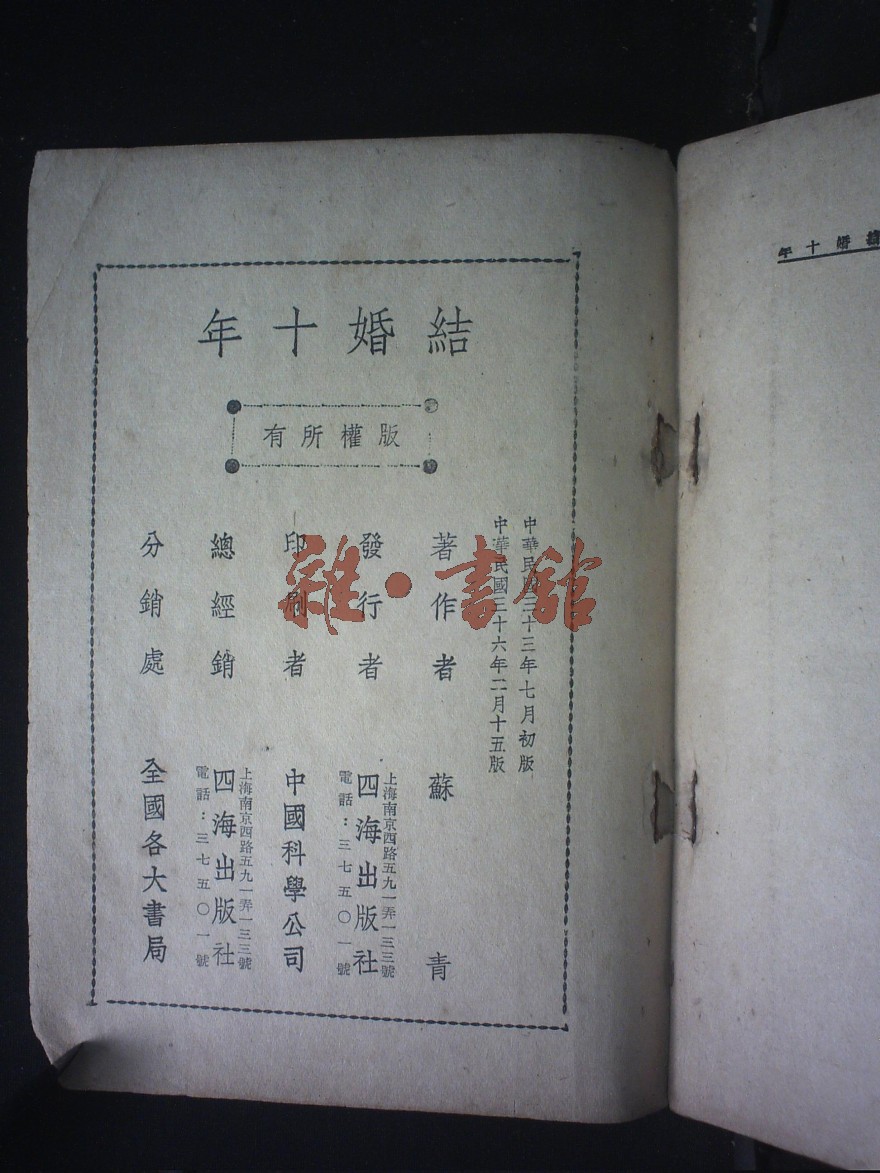 結婚十年
版權所有
中華民國三十三年七月初版
中華民國三十六年二月十五版
著作者 蘇青
發行者 四海出版社
上海南京西路五九一弄一三三號
電話：三七五〇一號
印刷者 中國科學公司
總經銷 四海出版社
上海南京西路五九一弄一三三號
電話：三七五〇一號
分銷處 全國各大書局
雜·書館
婚十年